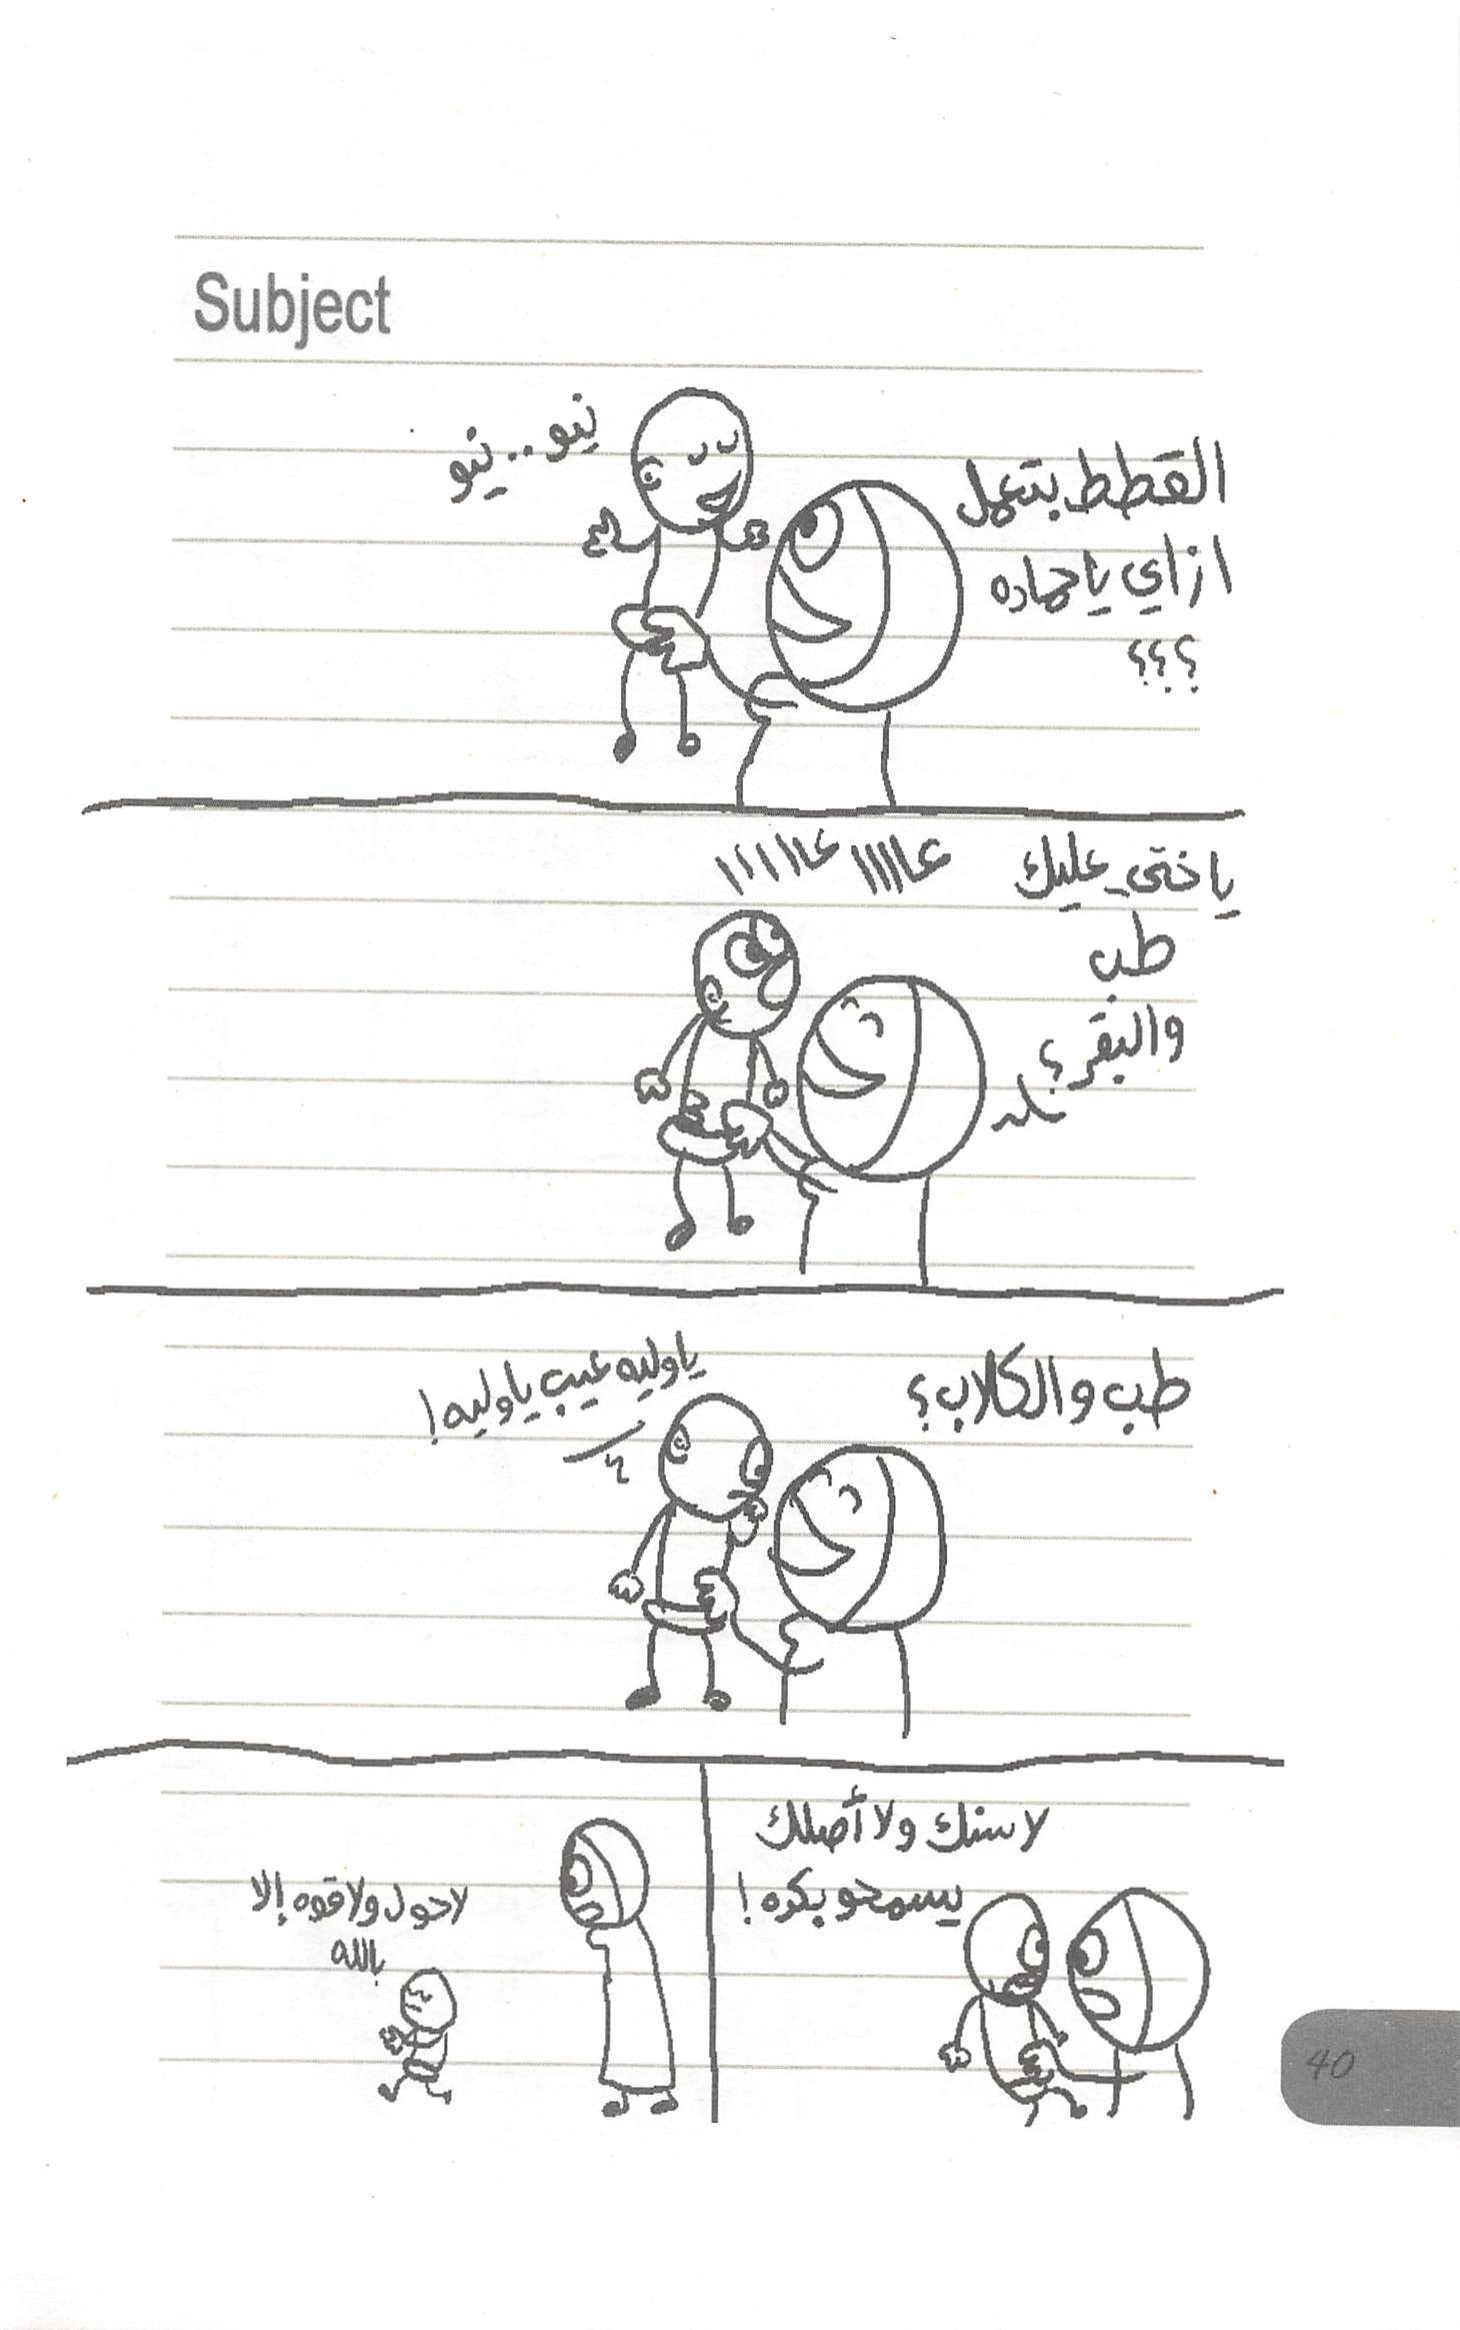 Subject
القطط بتعمل
ازاي يا حماده
؟؟؟
نيو .. نيو
ياختي عليك
طب
والبقر؟
عاااا عااااااا
طب والكلاب؟
يا وليه عيب يا وليه!
لا سنك ولا أصلك
يسمحو بكده!
لا حول ولا قوه إلا
بالله
40